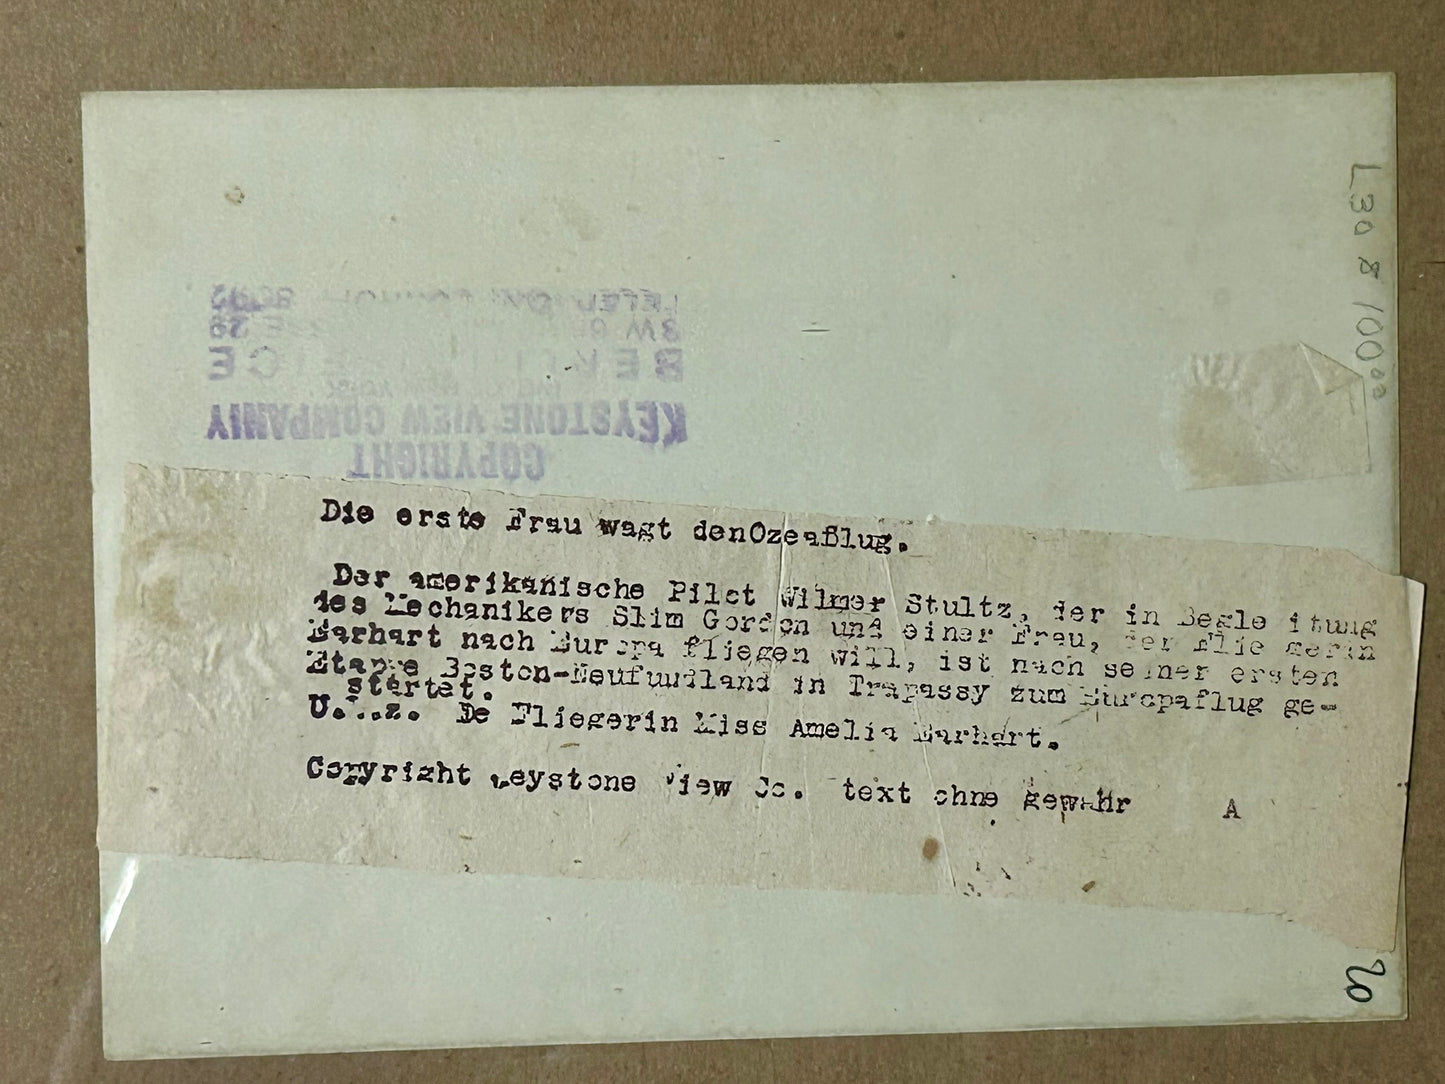 COPYRIGHT
KEYSTONE VIEW COMPANY
Die erste Frau wagt denOzeaßlug.
Der amerikanische Pilot Wilmer Stultz, der in Begle itung
des Mechanikers Slim Gordon und einer Frau, der Flie gerin
Earhart nach Europa fliegen will, ist nach seiner ersten
Etappe Boston-Neufundland in Trapassy zum Europaflug ge-
startet.
De Fliegerin Miss Amelia Earhart.
Copyright Keystone View Co. text ohne gewähr A
L30 8 100⁰⁰
20